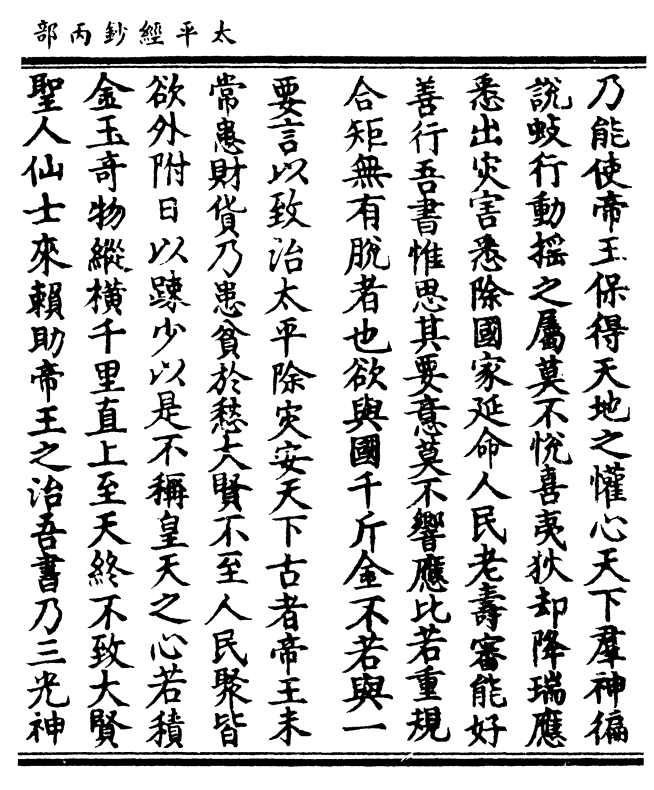 太平經鈔丙部
乃能使帝王保得天地之懽心天下羣神徧
說蚑行動搖之屬莫不悅喜夷狄却降瑞應
悉出灾害悉除國家延命人民老壽審能好
善行吾書惟思其要意莫不響應比若重規
合矩無有脫者也欲與國千斤金不若與一
要言以致治太平除灾安天下古者帝王未
常患財貨乃患貧於愁大賢不至人民聚皆
欲外附日以踈少以是不稱皇天之心若積
金玉奇物縱橫千里直上至天終不致大賢
聖人仙士來賴助帝王之治吾書乃三光神